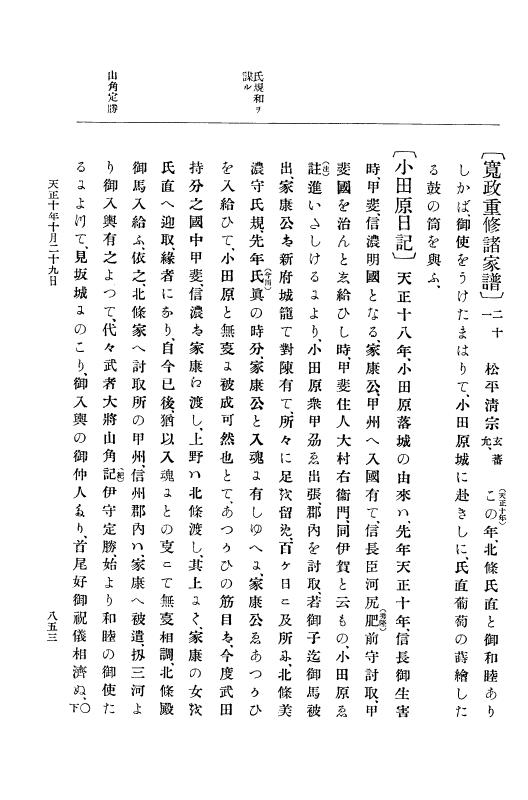 氏規和ヲ
謀ル
山角定勝
〔寛政重修諸家譜〕二十一 松平淸宗玄蕃允、 (天正十年)この年、北條氏直と御和睦あり
しかば、御使をうけたまはりて、小田原城に赴きしに、氏直葡萄の蒔繪した
る鼓の筒を與ふ、
〔小田原日記〕天正十八年、小田原落城の由來ハ、先年天正十年、信長御生害
時、甲斐、信濃明國となる、家康公、甲州へ入國有て、信長臣河尻肥(秀隆)前守討取、甲
斐國を治んとゑ給ひし時、甲斐住人大村右衞門、同伊賀と云もの、小田原ゑ
註(注)進いさしけるより、小田原衆甲劦ゑ出張、郡內を討取、若御子迄御馬被
出、家康公も新府城籠て對陳有て、所々に足汝留、百ヶ日ニ及所、北條美
濃守氏規、先年氏眞(今川)の時分、家康公と入魂ま有しゆへま、家康公ゑあつうひ
を入給ひて、小田原と無叓ま被成可然也とて、あつうひの筋目も、今度武田
持分之國中甲斐、信濃も家康に渡し、上野ハ北條渡し、其上ま、家康の女汝
氏直へ迎取、緣者にあり、自今已後、猶以入魂まとの叓ニて無叓相調、北條殿
御馬入給ふ、依之、北條家へ討取所の甲州、信州郡內ハ、家康へ被遣、扨三河よ
り御入輿有之よつて、代々武者大將山角記(紀)伊守定勝、始より和睦の御使た
るまよけて、見坂城まのこり、御入輿の御仲人あり、首尾好御祝儀相濟ぬ、○下
天正十年十月二十九日
八五三